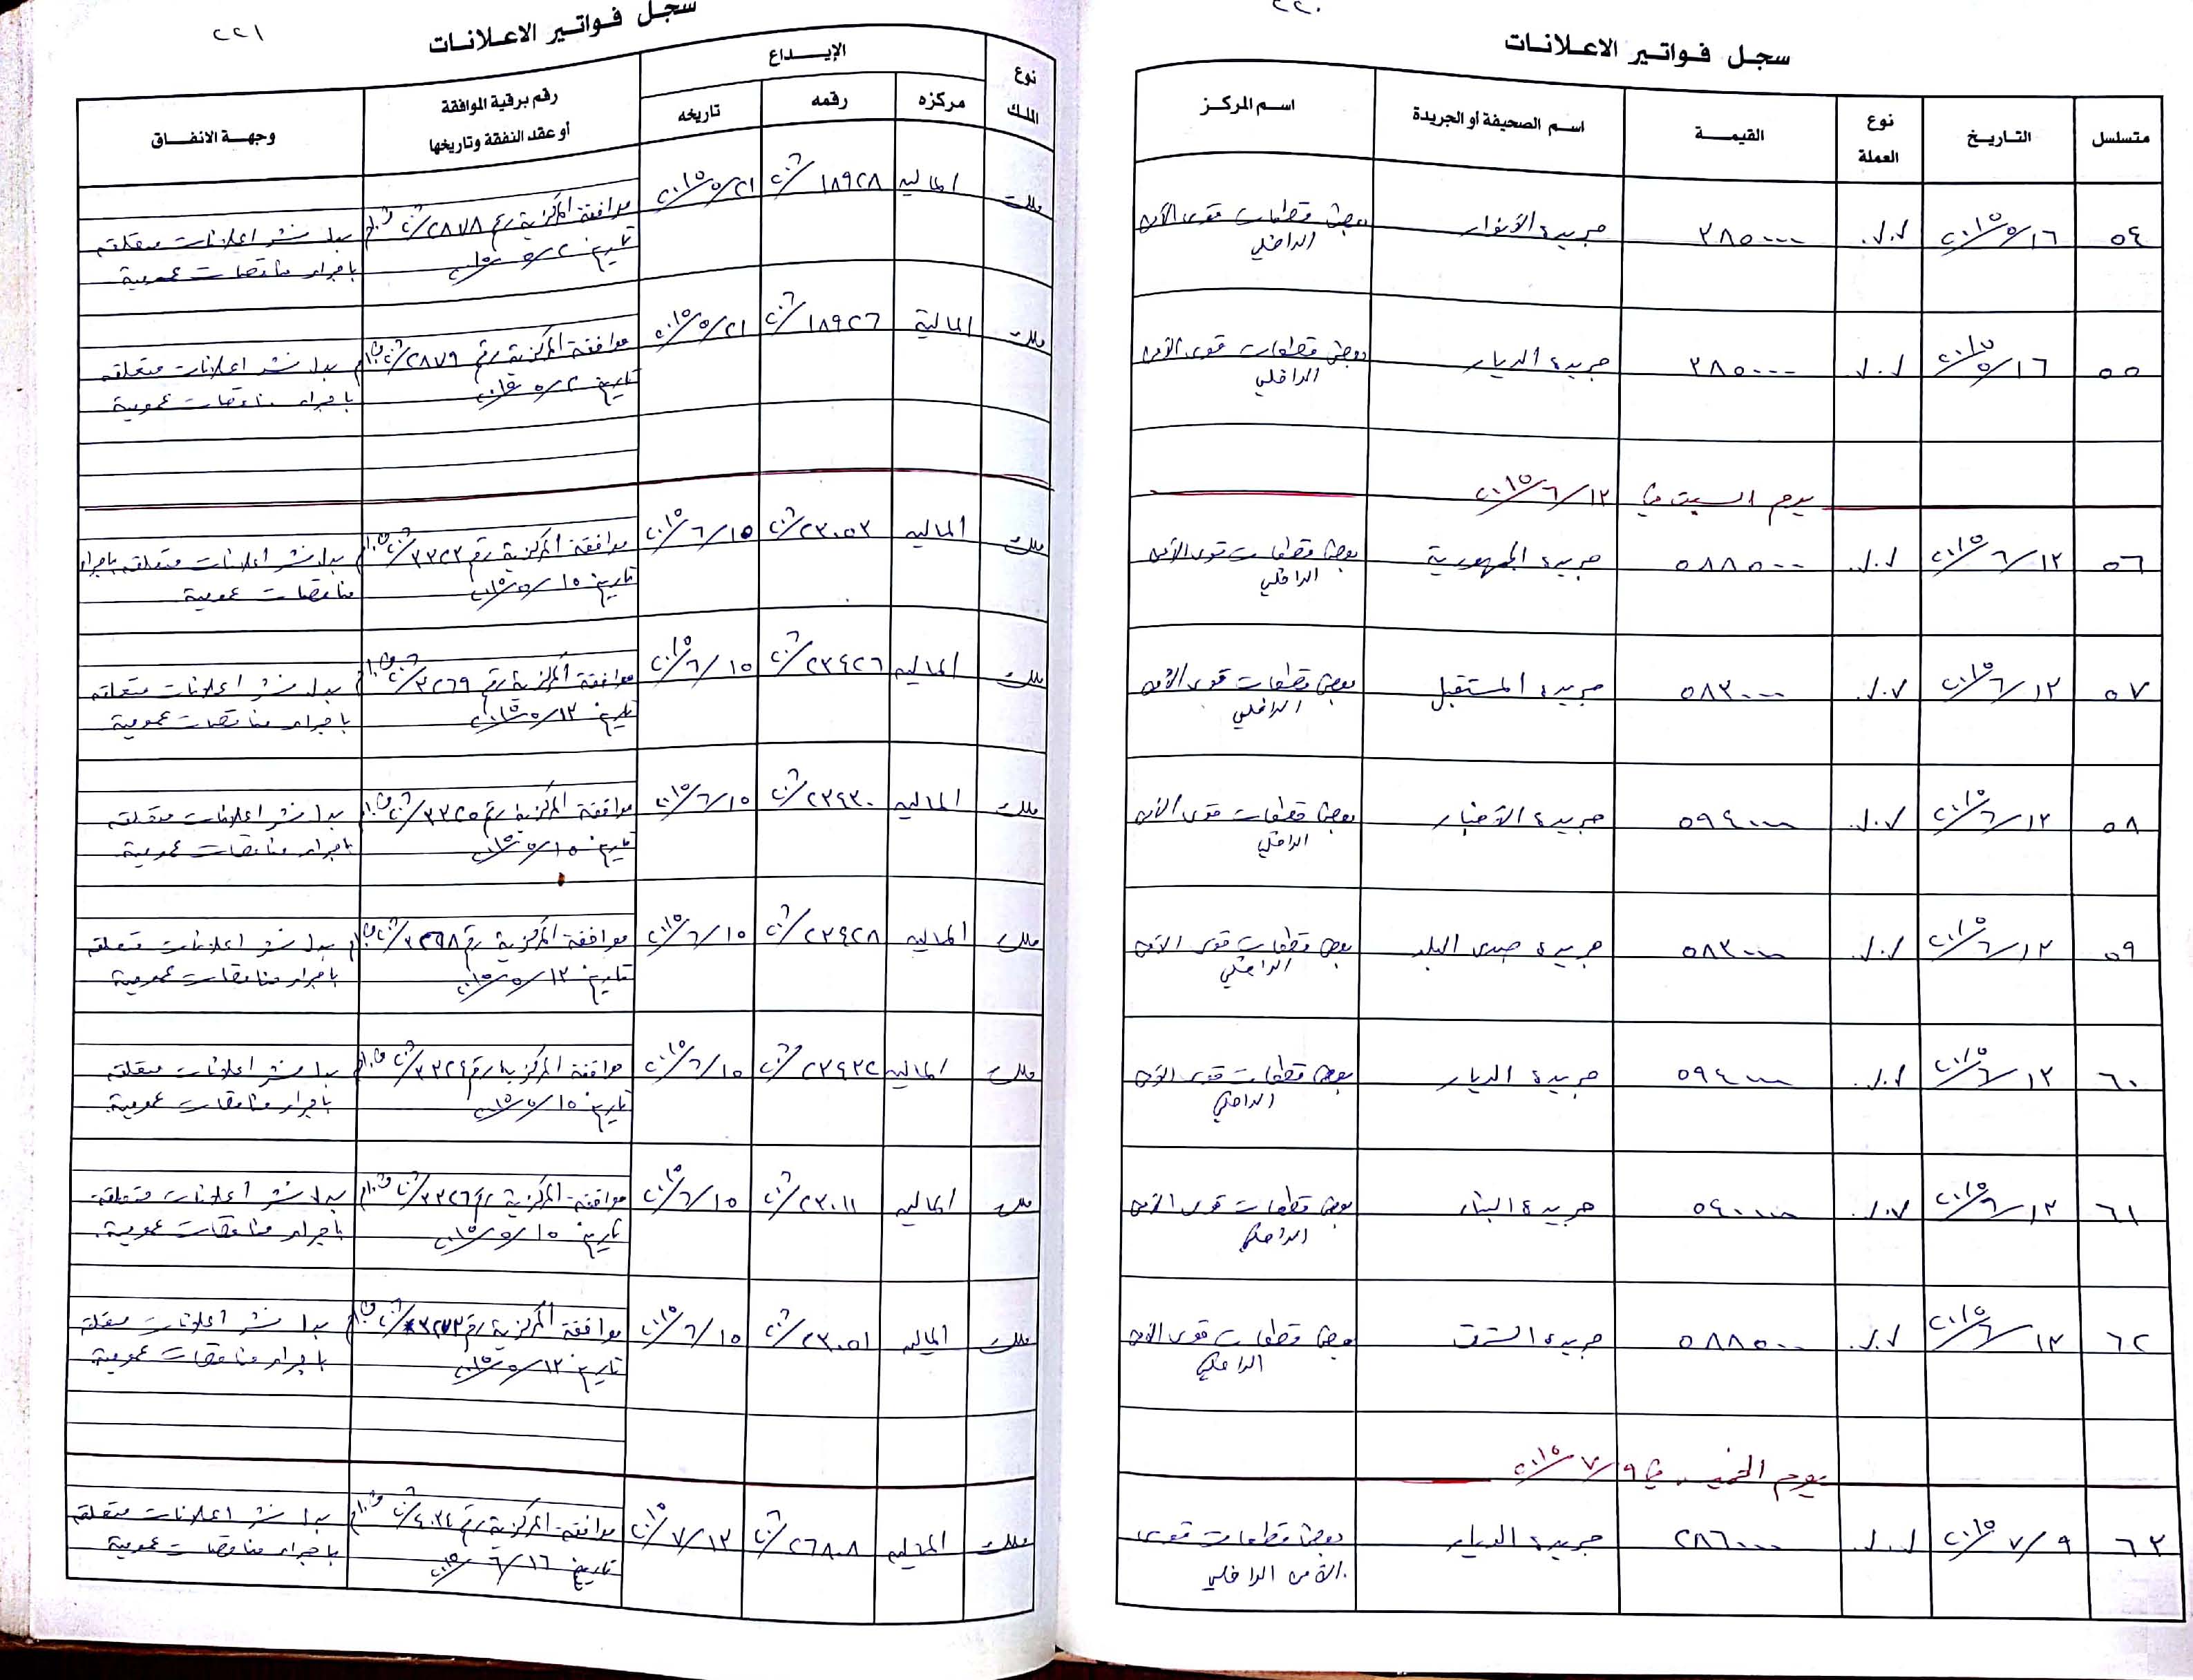 ٢٢٠
سجل فواتير الاعلانات
متسلسل | التاريخ | نوع العملة | القيمة | اسم الصحيفة أو الجريدة | اسم المركز
٥٤ | ٢٠١٥/٥/١٦ | ل.ل. | ٣٨٥٠٠٠ | جريدة الأنوار | بعض قطعات قوى الأمن الداخلي
٥٥ | ٢٠١٥/٥/١٦ | ل.ل. | ٣٨٥٠٠٠ | جريدة الديار | بعض قطعات قوى الأمن الداخلي
يوم السبت في ٢٠١٥/٦/١٣
٥٦ | ٢٠١٥/٦/١٣ | ل.ل. | ٥٨٨٥٠٠ | جريدة الجمهورية | بعض قطعات قوى الأمن الداخلي
٥٧ | ٢٠١٥/٦/١٣ | ل.ل. | ٥٨٣٠٠٠ | جريدة المستقبل | بعض قطعات قوى الأمن الداخلي
٥٨ | ٢٠١٥/٦/١٣ | ل.ل. | ٥٩٤٠٠٠ | جريدة الأخبار | بعض قطعات قوى الأمن الداخلي
٥٩ | ٢٠١٥/٦/١٣ | ل.ل. | ٥٨٣٠٠٠ | جريدة صدى البلد | بعض قطعات قوى الأمن الداخلي
٦٠ | ٢٠١٥/٦/١٣ | ل.ل. | ٥٩٤٠٠٠ | جريدة الديار | بعض قطعات قوى الأمن الداخلي
٦١ | ٢٠١٥/٦/١٣ | ل.ل. | ٥٤٠٠٠٠ | جريدة البناء | بعض قطعات قوى الأمن الداخلي
٦٢ | ٢٠١٥/٦/١٣ | ل.ل. | ٥٨٨٥٠٠ | جريدة الشرق | بعض قطعات قوى الأمن الداخلي
يوم الخميس في ٢٠١٥/٧/٩
٦٣ | ٢٠١٥/٧/٩ | ل.ل. | ٢٨٦٠٠٠ | جريدة الديار | بعض قطعات قوى الأمن الداخلي
٢٢١
سجل فواتير الاعلانات
نوع الملك | الإيداع | مركزه | رقمه | تاريخه | رقم برقية الموافقة أو عقد النفقة وتاريخها | وجهة الانفاق
ملك | المالية | ١٨٩٢٨ | ٢٠١٥/٥/٢١ | موافقة المركزية رقم ٢٨٧٨ تاريخ ٢٠١٥/٥/٢ | بدل نشر اعلانات متعلقة باجراء مناقصات عمومية
ملك | المالية | ١٨٩٢٦ | ٢٠١٥/٥/٢١ | موافقة المركزية رقم ٢٨٧٩ تاريخ ٢٠١٥/٥/٢ | بدل نشر اعلانات متعلقة باجراء مناقصات عمومية
ملك | المالية | ٢٣٠٥٣ | ٢٠١٥/٦/١٥ | موافقة المركزية رقم ٣٣٢٣ تاريخ ٢٠١٥/٥/١٥ | بدل نشر اعلانات متعلقة باجراء مناقصات عمومية
ملك | المالية | ٢٣٤٢٦ | ٢٠١٥/٦/١٥ | موافقة المركزية رقم ٣٢٦٩ تاريخ ٢٠١٥/٥/١٣ | بدل نشر اعلانات متعلقة باجراء مناقصات عمومية
ملك | المالية | ٢٣٤٣٠ | ٢٠١٥/٦/١٥ | موافقة المركزية رقم ٣٣٢٥ تاريخ ٢٠١٥/٥/١٥ | بدل نشر اعلانات متعلقة باجراء مناقصات عمومية
ملك | المالية | ٢٣٤٢٨ | ٢٠١٥/٦/١٥ | موافقة المركزية رقم ٣٢٦٨ تاريخ ٢٠١٥/٥/١٣ | بدل نشر اعلانات متعلقة باجراء مناقصات عمومية
ملك | المالية | ٢٣٤٣٢ | ٢٠١٥/٦/١٥ | موافقة المركزية رقم ٣٣٢٤ تاريخ ٢٠١٥/٥/١٥ | بدل نشر اعلانات متعلقة باجراء مناقصات عمومية
ملك | المالية | ٢٣٠١١ | ٢٠١٥/٦/١٥ | موافقة المركزية رقم ٣٣٢٦ تاريخ ٢٠١٥/٥/١٥ | بدل نشر اعلانات متعلقة باجراء مناقصات عمومية
ملك | المالية | ٢٣٠٥١ | ٢٠١٥/٦/١٥ | موافقة المركزية رقم تاريخ ٢٠١٥/٥/١٣ | بدل نشر اعلانات متعلقة باجراء مناقصات عمومية
ملك | المالية | ٢٦٨٠٨ | ٢٠١٥/٧/١٣ | موافقة المركزية رقم ٤٠٣٤ تاريخ ٢٠١٥/٦/١٦ | بدل نشر اعلانات متعلقة باجراء مناقصات عمومية